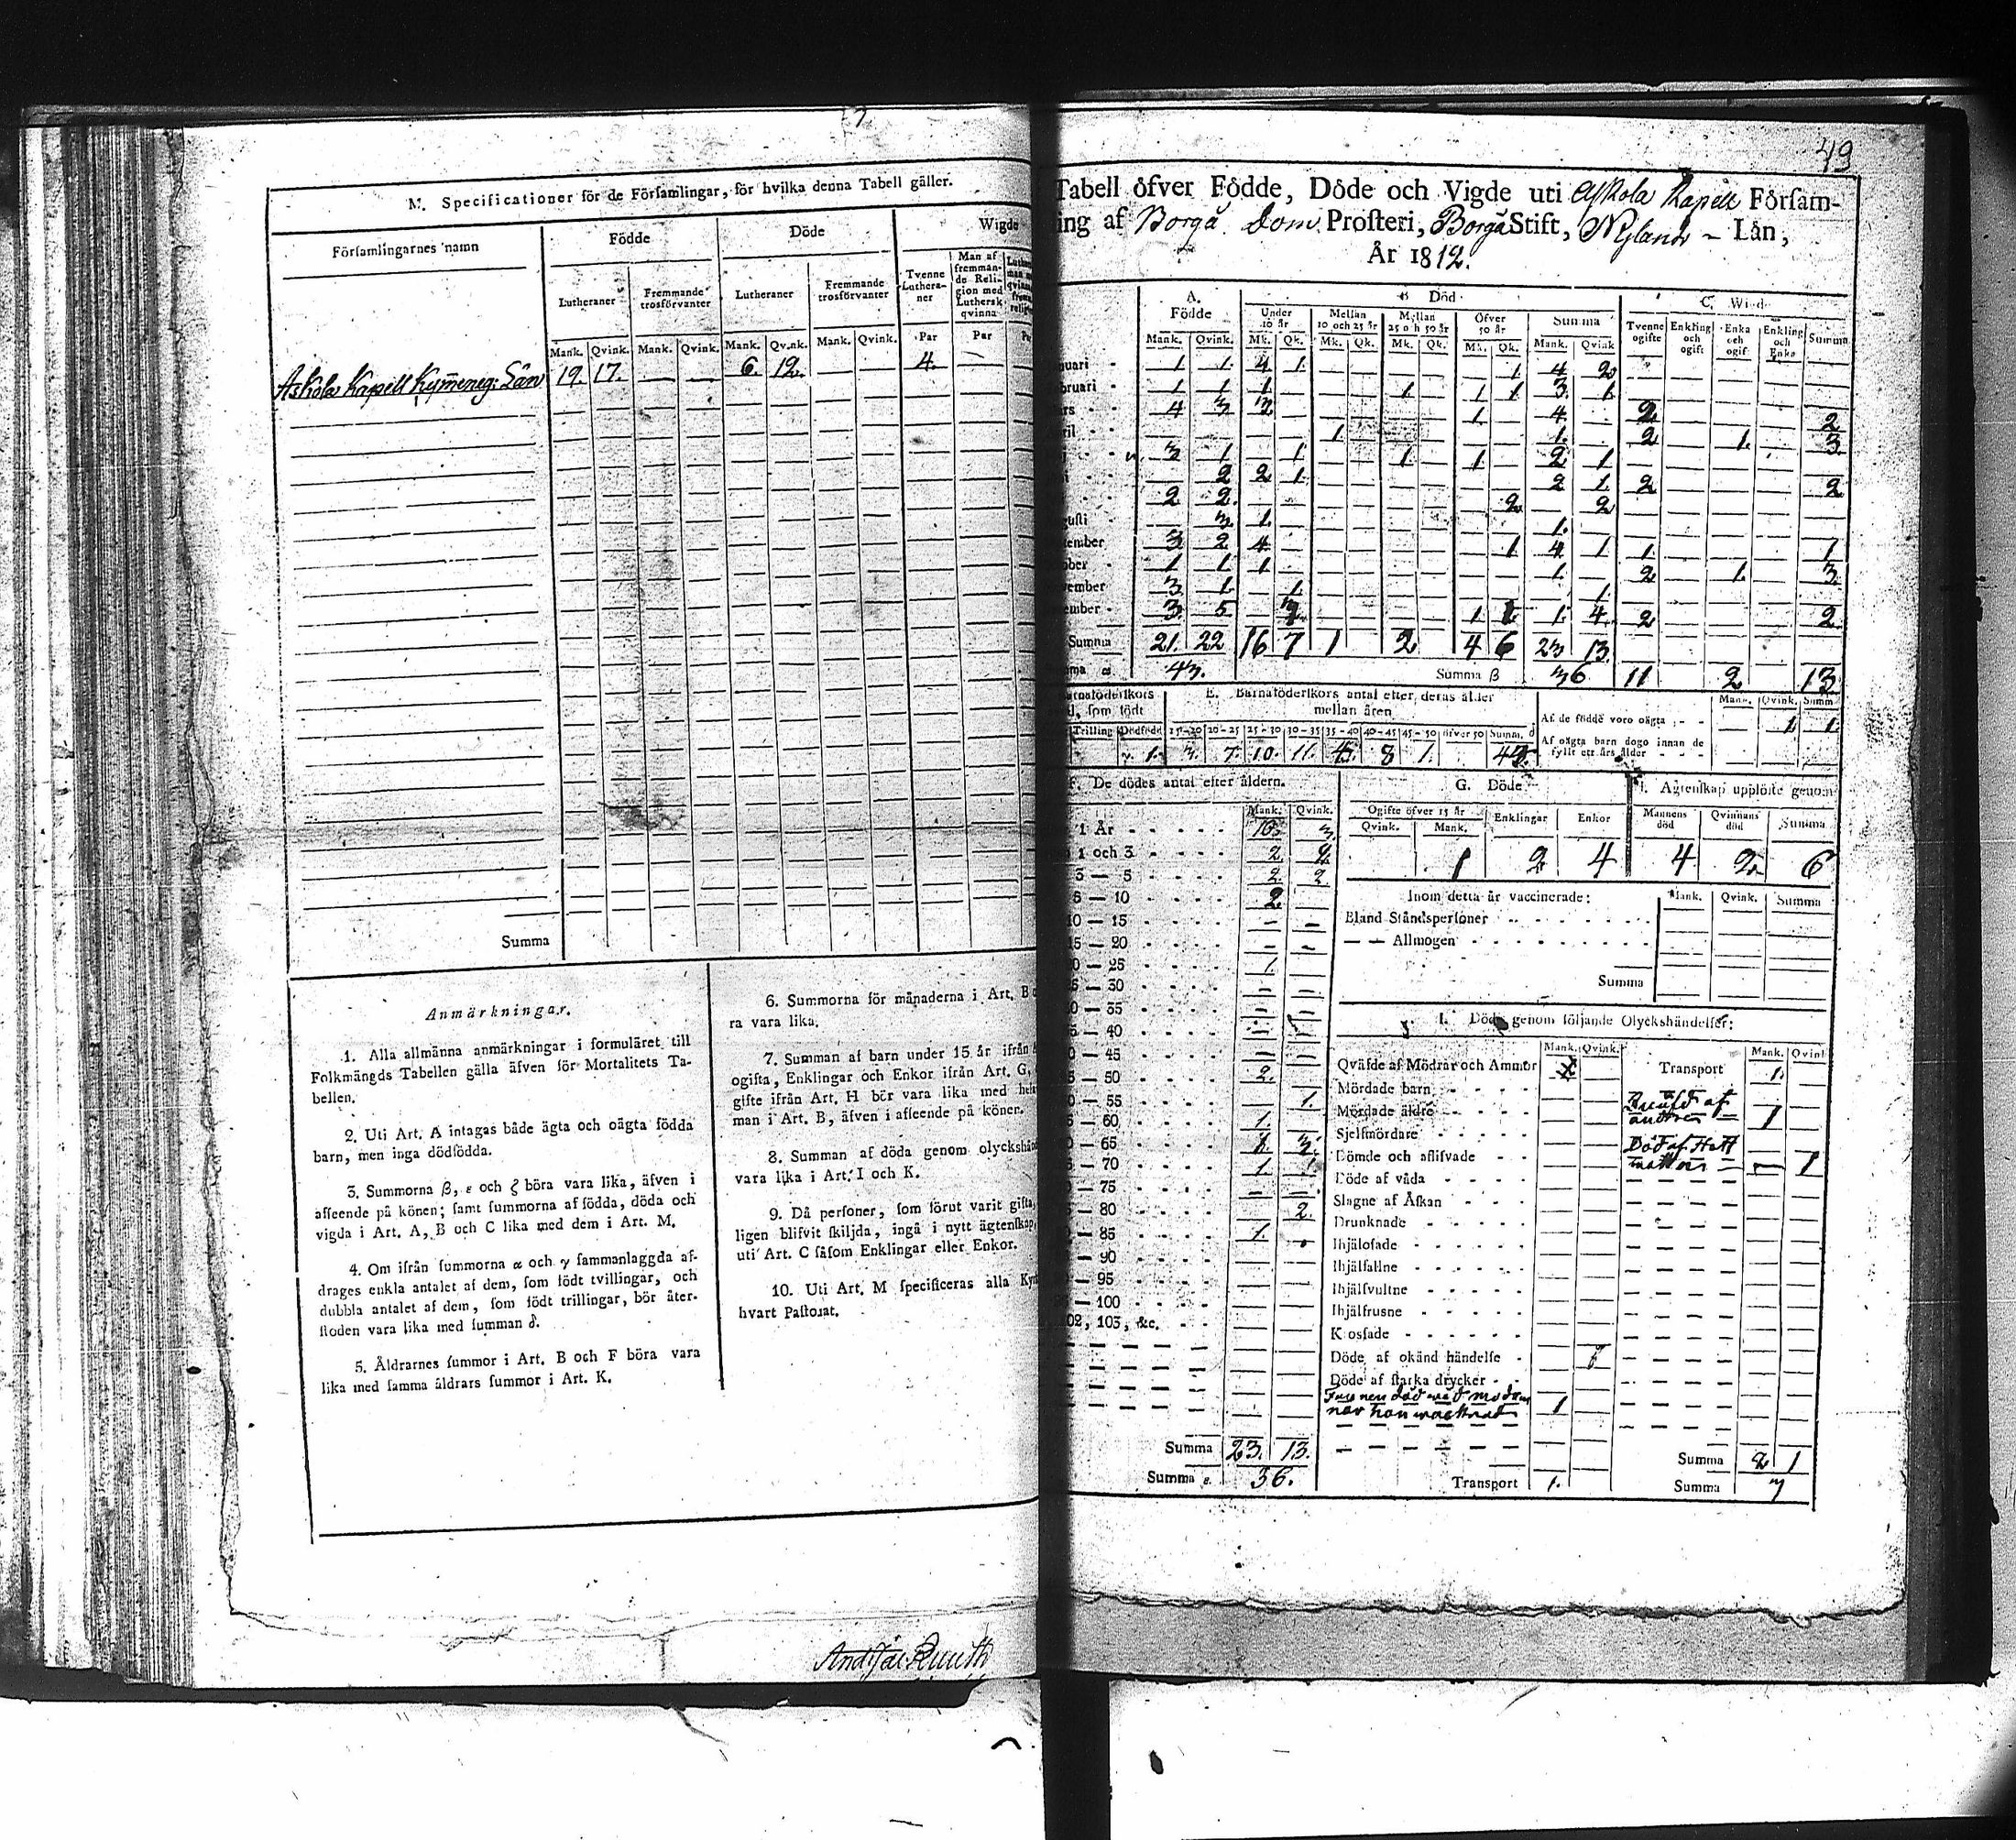 M. Specificationer för de Församlingar, för hvilka denna Tabell gäller.
Församlingarnes namn
Födde
Döde
Wigde
Lutheraner
Fremmande trosförvanter
Lutheraner
Fremmande trosförvanter
Tvenne Lutheraner
Man af fremmande Religion med Luthersk qvinna
Mank. Qvink. Mank. Qvink. Mank. Qvink. Mank. Qvink. Par Par
Askola Kapell Kymeneg: Län 19. 17. — — 6. 12. — — 4. —
Summa
Anmärkningar.
1. Alla allmänna anmärkningar i formuläret till
Folkmängds Tabellen gälla äfven för Mortalitets Ta-
bellen.
2. Uti Art. A intagas både ägta och oägta födda
barn, men inga dödfödda.
3. Summorna β, ε och ζ böra vara lika, äfven i
afseende på könen; samt summorna af födda, döda och
vigda i Art. A, B och C lika med dem i Art. M.
4. Om ifrån summorna α och γ sammanlaggda af-
drages enkla antalet af dem, som födt tvillingar, och
dubbla antalet af dem, som födt trillingar, bör åter-
stoden vara lika med summan δ.
5. Åldrarnes summor i Art. B och F böra vara
lika med samma åldrars summor i Art. K.
6. Summorna för månaderna i Art. B
ra vara lika.
7. Summan af barn under 15 år ifrån
ogifta, Enklingar och Enkor ifrån Art. G,
gifte ifrån Art. H bör vara lika med
man i Art. B, äfven i afseende på könet.
8. Summan af döda genom
vara lika i Art. I och K.
9. Då personer, som förut varit gifta,
ligen blifvit skiljda, ingå i nytt
uti Art. C såsom Enklingar eller Enkor.
10. Uti Art. M specificeras alla
hvart Pastorat.
Andreas Ruuth
49
Tabell öfver Födde, Döde och Vigde uti Askola Kapell Försam-
ling af Borgå Dom. Prosteri, Borgå Stift, Nylands – Län,
År 1812.
A. Födde
Död
C. Wigde
Under 10 år
Mellan 10 och 25 år
Mellan 25 och 50 år
Öfver 50 år
Summa
Tvenne ogifte
Enkling och ogift
Enka och ogift
Enkling och Enka
Summa
Mank. Qvink. Mk. Qk. Mk. Qk. Mk. Qk. Mk. Qk. Mank. Qvink
1. 1. 4. 1. 1 4 2
1. 1. 1. 1 1 1 3. 1.
4 3 3. 1. 4. 2. 2
1 1. 2 1. 3.
3 1. 1. 1 1 2 1
2 2 1. 2 1. 2 2
2 2. 2 2
3. 1. 1.
tember 3 2 4. 1 4 1 1. 1
1 1 1 1. 2 1. 3.
vember 3. 1. 1. 1.
ember 3. 5. 1 1. 4. 2 2.
Summa 21. 22 16 7 1 2 4 6 23 13.
43. Summa β 36 11 2 13
E. Barnaföderskors antal efter deras ålder
mellan åren
Trilling Dödfödd 15—20 20—25 25—30 30—35 35—40 40—45 45—50 öfver 50 Summ. δ
1. 7. 10. 11. 8 1.
Mank. Qvink. Summ.
Af de födde voro oägta 1. 1.
Af oägta barn dogo innan de
fyllt ett års ålder
F. De dödes antal efter åldern.
Mank. Qvink.
1 År 10. 3.
1 och 3 2 2
3 — 5 2. 2
5 — 10 2.
10 — 15
15 — 20
— 25 1.
— 30
— 35
— 40
— 45
— 50 2.
— 55 1.
— 60 1.
— 65 3.
— 70 1.
— 75
— 80 2.
— 85 1.
— 90
— 95
— 100
102, 103, &c.
Summa 23. 13.
Summa ε. 36.
G. Döde
Ogifte öfver 15 år
Enklingar
Enkor
Qvink. Mank.
1 2 4
H. Ägtenskap upplöste genom
Mannens död
Qvinnans död
Summa
4 2. 6
Inom detta år vaccinerade:
Mank. Qvink. Summa
Bland Ståndspersoner
— — Allmogen
Summa
I. Döde genom följande Olyckshändelser:
Mank. Qvink. Mank.
Qväfde af Mödrar och Ammor
Mördade barn
Mördade äldre
Sjelfmördare
Dömde och aflifvade
Döde af våda
Slagne af Åskan
Drunknade
Ihjälosade
Ihjälfallne
Ihjälsvultne
Ihjälfrusne
Krossade
Döde af okänd händelse
Döde af starka drycker
Funnen död med modren
när hon wacknat 1
Transport 1.
Transport 1.
Qväfd af
andra 1
Död af 1
Summa 2 1
Summa